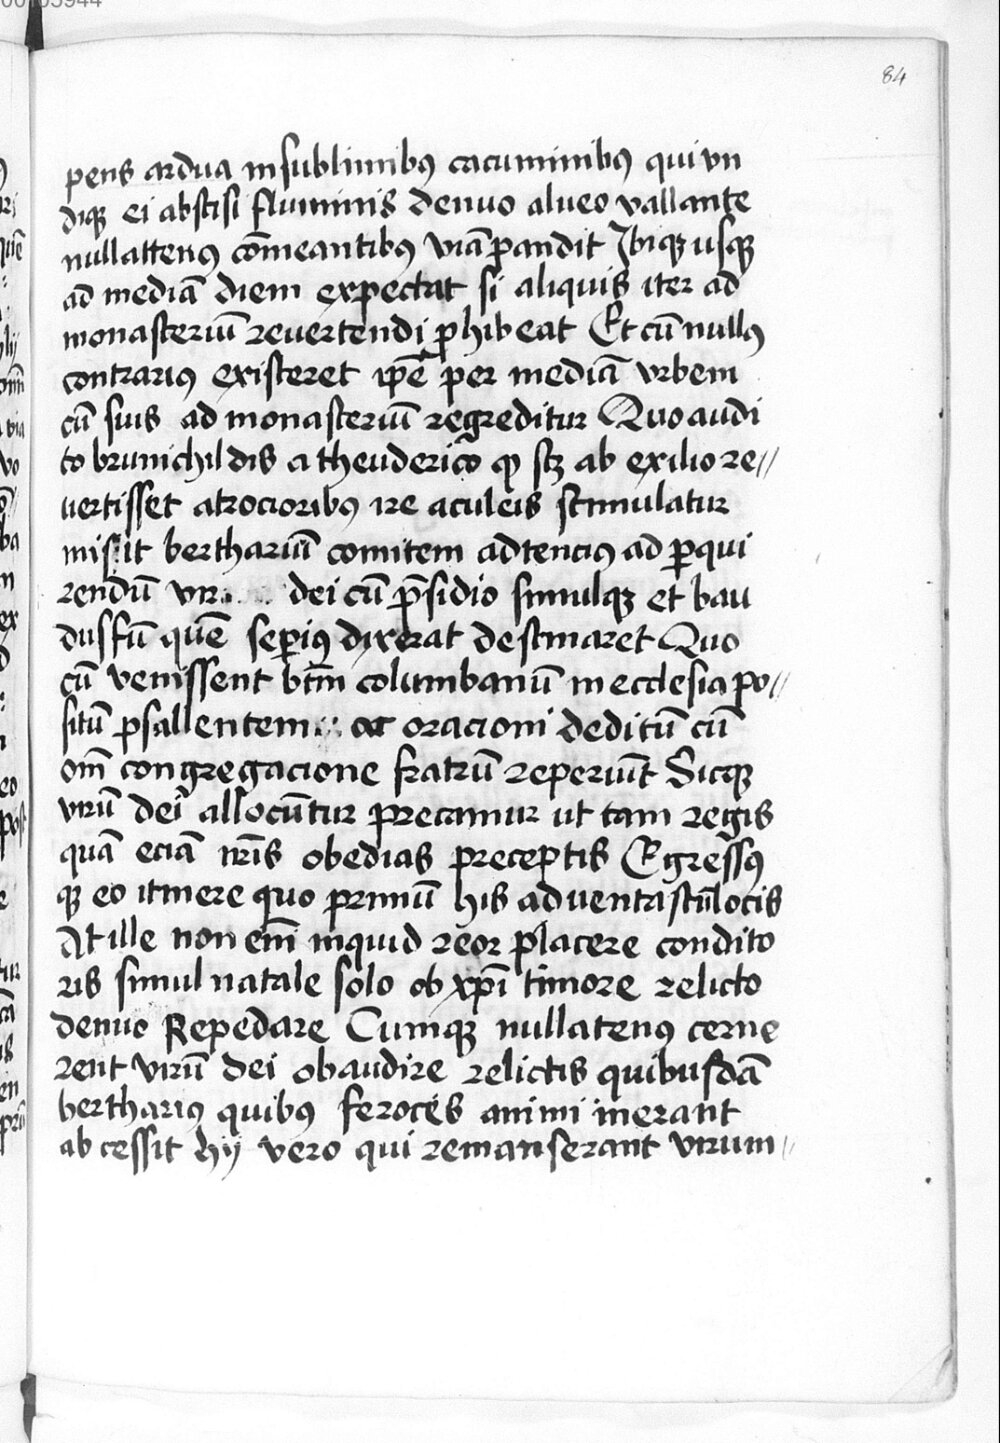 00105944
84
pens ardua in sublimibꝰ cacuminibꝰ qui vn
diqꝫ ei abscisi fluminis denuo alueo vallante
nullattenꝰ cōmeantibꝰ viā pandit Ibiqꝫ usqꝫ
ad mediā diem expectat si aliquis iter ad
monasteriū revertendi ꝓhibeat Et cū nullꝰ
contrariꝰ existeret ip̄e per mediā vrbem
cū suis ad monasteriū regreditur Quo audi
to brunichildis a theuderico ꝙ scꝫ ab exilio re//
uertisset atrocioribꝰ ire aculeis stimulatur
misit berthariū comitem adtenciꝰ ad ꝑqui
rendū vir dei cū p̄sidio simulqꝫ et bau
dusfū quē sepiꝰ dixerat destinaret Quo
cū venissent bt̄m columbanū in ecclesia po//
sitū psallentem ac oracioni deditū cū
om̄ congregacione fratrū reperiūt Sicqꝫ
virū dei allocūtur precamur ut tam regis
quā eciā nr̄is obedias preceptis Egressꝰ
qꝫ eo itinere quo primū his adventasti locis
At ille non em̄ inquid reor placere condito
ris simul natale solo ob xp̄i timore relicto
denuo Repedare Cumqꝫ nullatenꝰ cerne
rent virū dei obaudire relictis quibusdā
berthariꝰ quibꝰ feroces animi inerant
ab cessit hij vero qui remanserant virum//